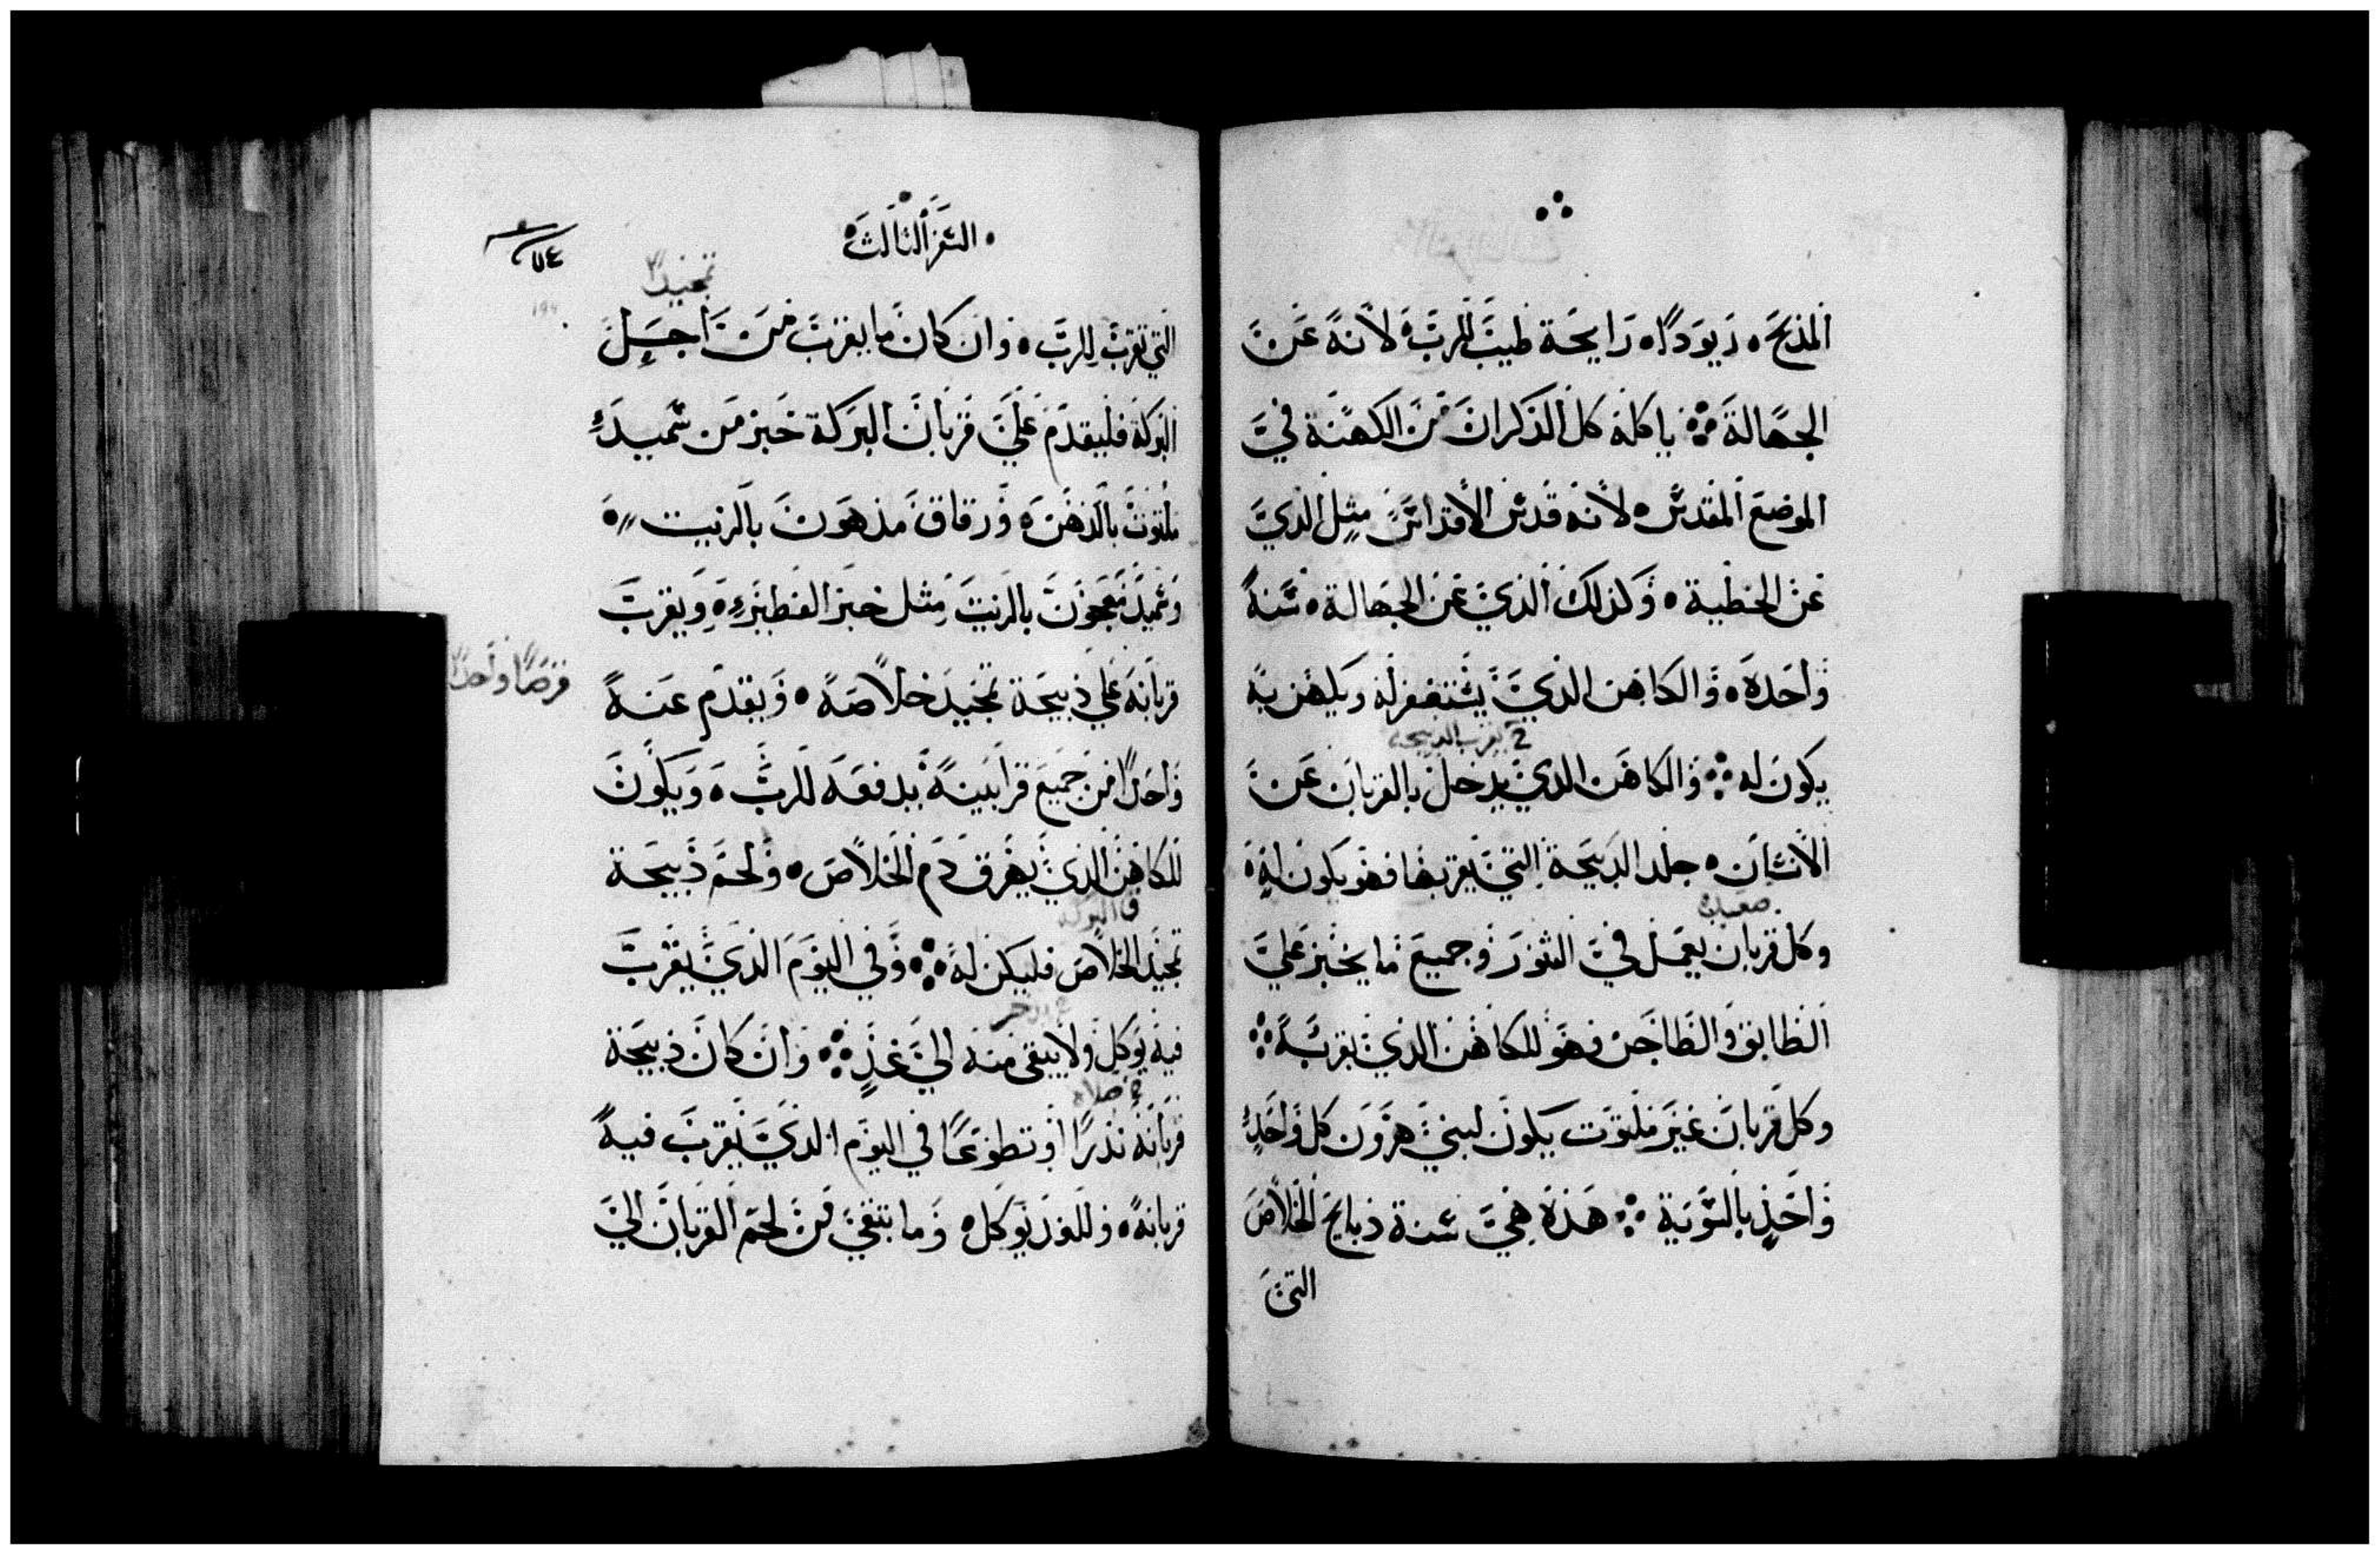 المذبح ۰ ويودًا ۰ رايحة طيب للرب ۰ لانه عن
الجهالة ۰ ياكله كل الذكران من الكهنة في
الموضع المقدس ۰ لانه قدس الاقداس مثل الذي
عن الخطية ۰ وكذلك الذي عن الجهالة ۰ سنة
واحدة ۰ والكاهن الذي يستغفر له ويكهن به
2 يقرب الدبيحه
يكون له ۰ والكاهن الدي يدخل بالقربان عن
الانسان ۰ جلد الدبيحة التي يقربها فهو يكون له ۰
صعيده
وكل قربان يعمل في التنور وجميع ما يخبز علي
الطابق والطاجن فهو للكاهن الذي يقربه ۰
وكل قربان غير ملتوت يكون لبني هرون كل واحد
واحد بالسوية ۰ هذه هي سنة ذبايح الخلاص
التي
السفر الثالث
٧٤
تمجيدًا
التي تقرب للرب ۰ وان كان ما يقرب من اجل
البركة فليقدم علي قربان البركة خبز من سميد
ملتوت بالدهن ۰ ورقاق مدهون بالزيت ۰
وسميد معجون بالزيت مثل خبز الفطير ۰ ويقرب
قرصًا واحدًا
قربانه علي ذبيحة تمجيد خلاصه ۰ ويقدم عنه
واحدًا من جميع قرابينه يدفعه للرب ۰ ويكون
للكاهن الذي يهرق دم الخلاص ۰ ولحم ذبيحة
والبركة
تمجيد الخلاص فليكن له ۰ وفي اليوم الذي يقرب
فيه يوكل ولا يبقى منه الي غد ۰ وان كان ذبيحة
صلاه
قربانه نذرًا او تطوعًا في اليوم الذي يقرب فيه
قربانه ۰ وللغد يوكل ۰ وما بقي من لحم القربان الي